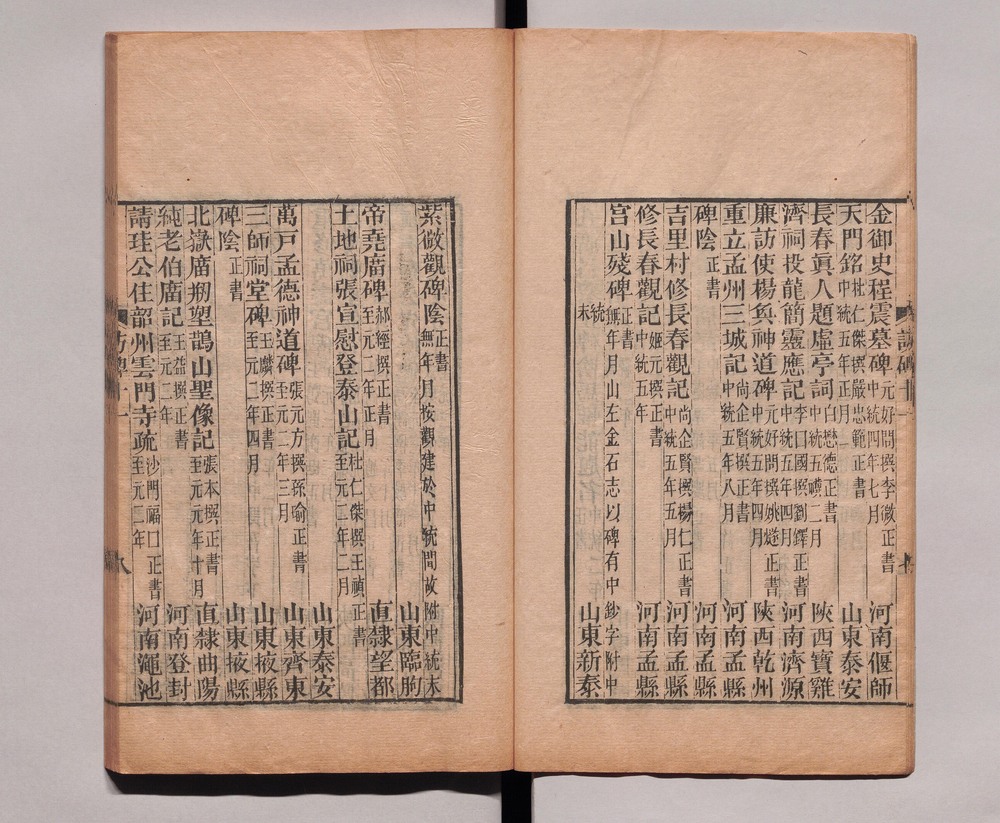 金御史程震墓碑 元好問撰李微正書 中統四年七月 河南偃師
天門銘 杜仁傑撰嚴忠範正書 中統五年正月 山東泰安
長春眞人題虛亭詞 白懋德正書 中統五禩二月 陝西寶雞
濟祠投龍簡靈應記 李囗國撰劉鐸正書 中統五年四月 河南濟源
廉訪使楊奐神道碑 元好問撰姚燧正書 中統五年四月 陝西乾州
重立孟州三城記 尚企賢撰正書 中統五年八月 河南孟縣
碑陰 正書 河南孟縣
吉里村修長春觀記 尚企賢撰楊仁正書 中統五年五月 河南孟縣
修長春觀記 姬元撰正書 中統五年 河南孟縣
宫山殘碑 正書 無年月山左金石志以碑有中統鈔字附中統末 山東新泰
紫微觀碑陰 正書 無年月按觀建於中統間故附中統末 山東臨朐
帝堯廟碑 郝經撰正書 至元二年正月 直隸望都
土地祠張宣慰登泰山記 杜仁傑撰王禎正書 至元二年二月 山東泰安
萬戶孟德神道碑 張元方撰孫瑜正書 至元二年三月 山東齊東
三師祠堂碑 王麟撰正書 至元二年四月 山東掖縣
碑陰 正書 山東掖縣
北嶽廟剏塑鵲山聖像記 張本撰正書 至元元年十月 直隸曲陽
純老伯廟記 王益撰正書 至元二年 河南登封
請珪公住韶州雲門寺疏 沙門福囗正書 至元二年 河南澠池
訪碑十一
八